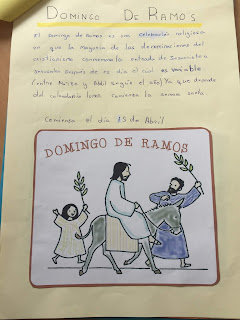 DOMINGO DE RAMOS
El Domingo de Ramos es una celebración religiosa
en que la mayoría de las denominaciones del
cristianismo conmemora la entrada de Jesucristo a
Jerusalén es de es día el cual es variable
(entre Marzo y Abril según el año) Ya que
del calendario lunar comienza la semana santa
Comienza el día 15 de Abril
DOMINGO DE RAMOS